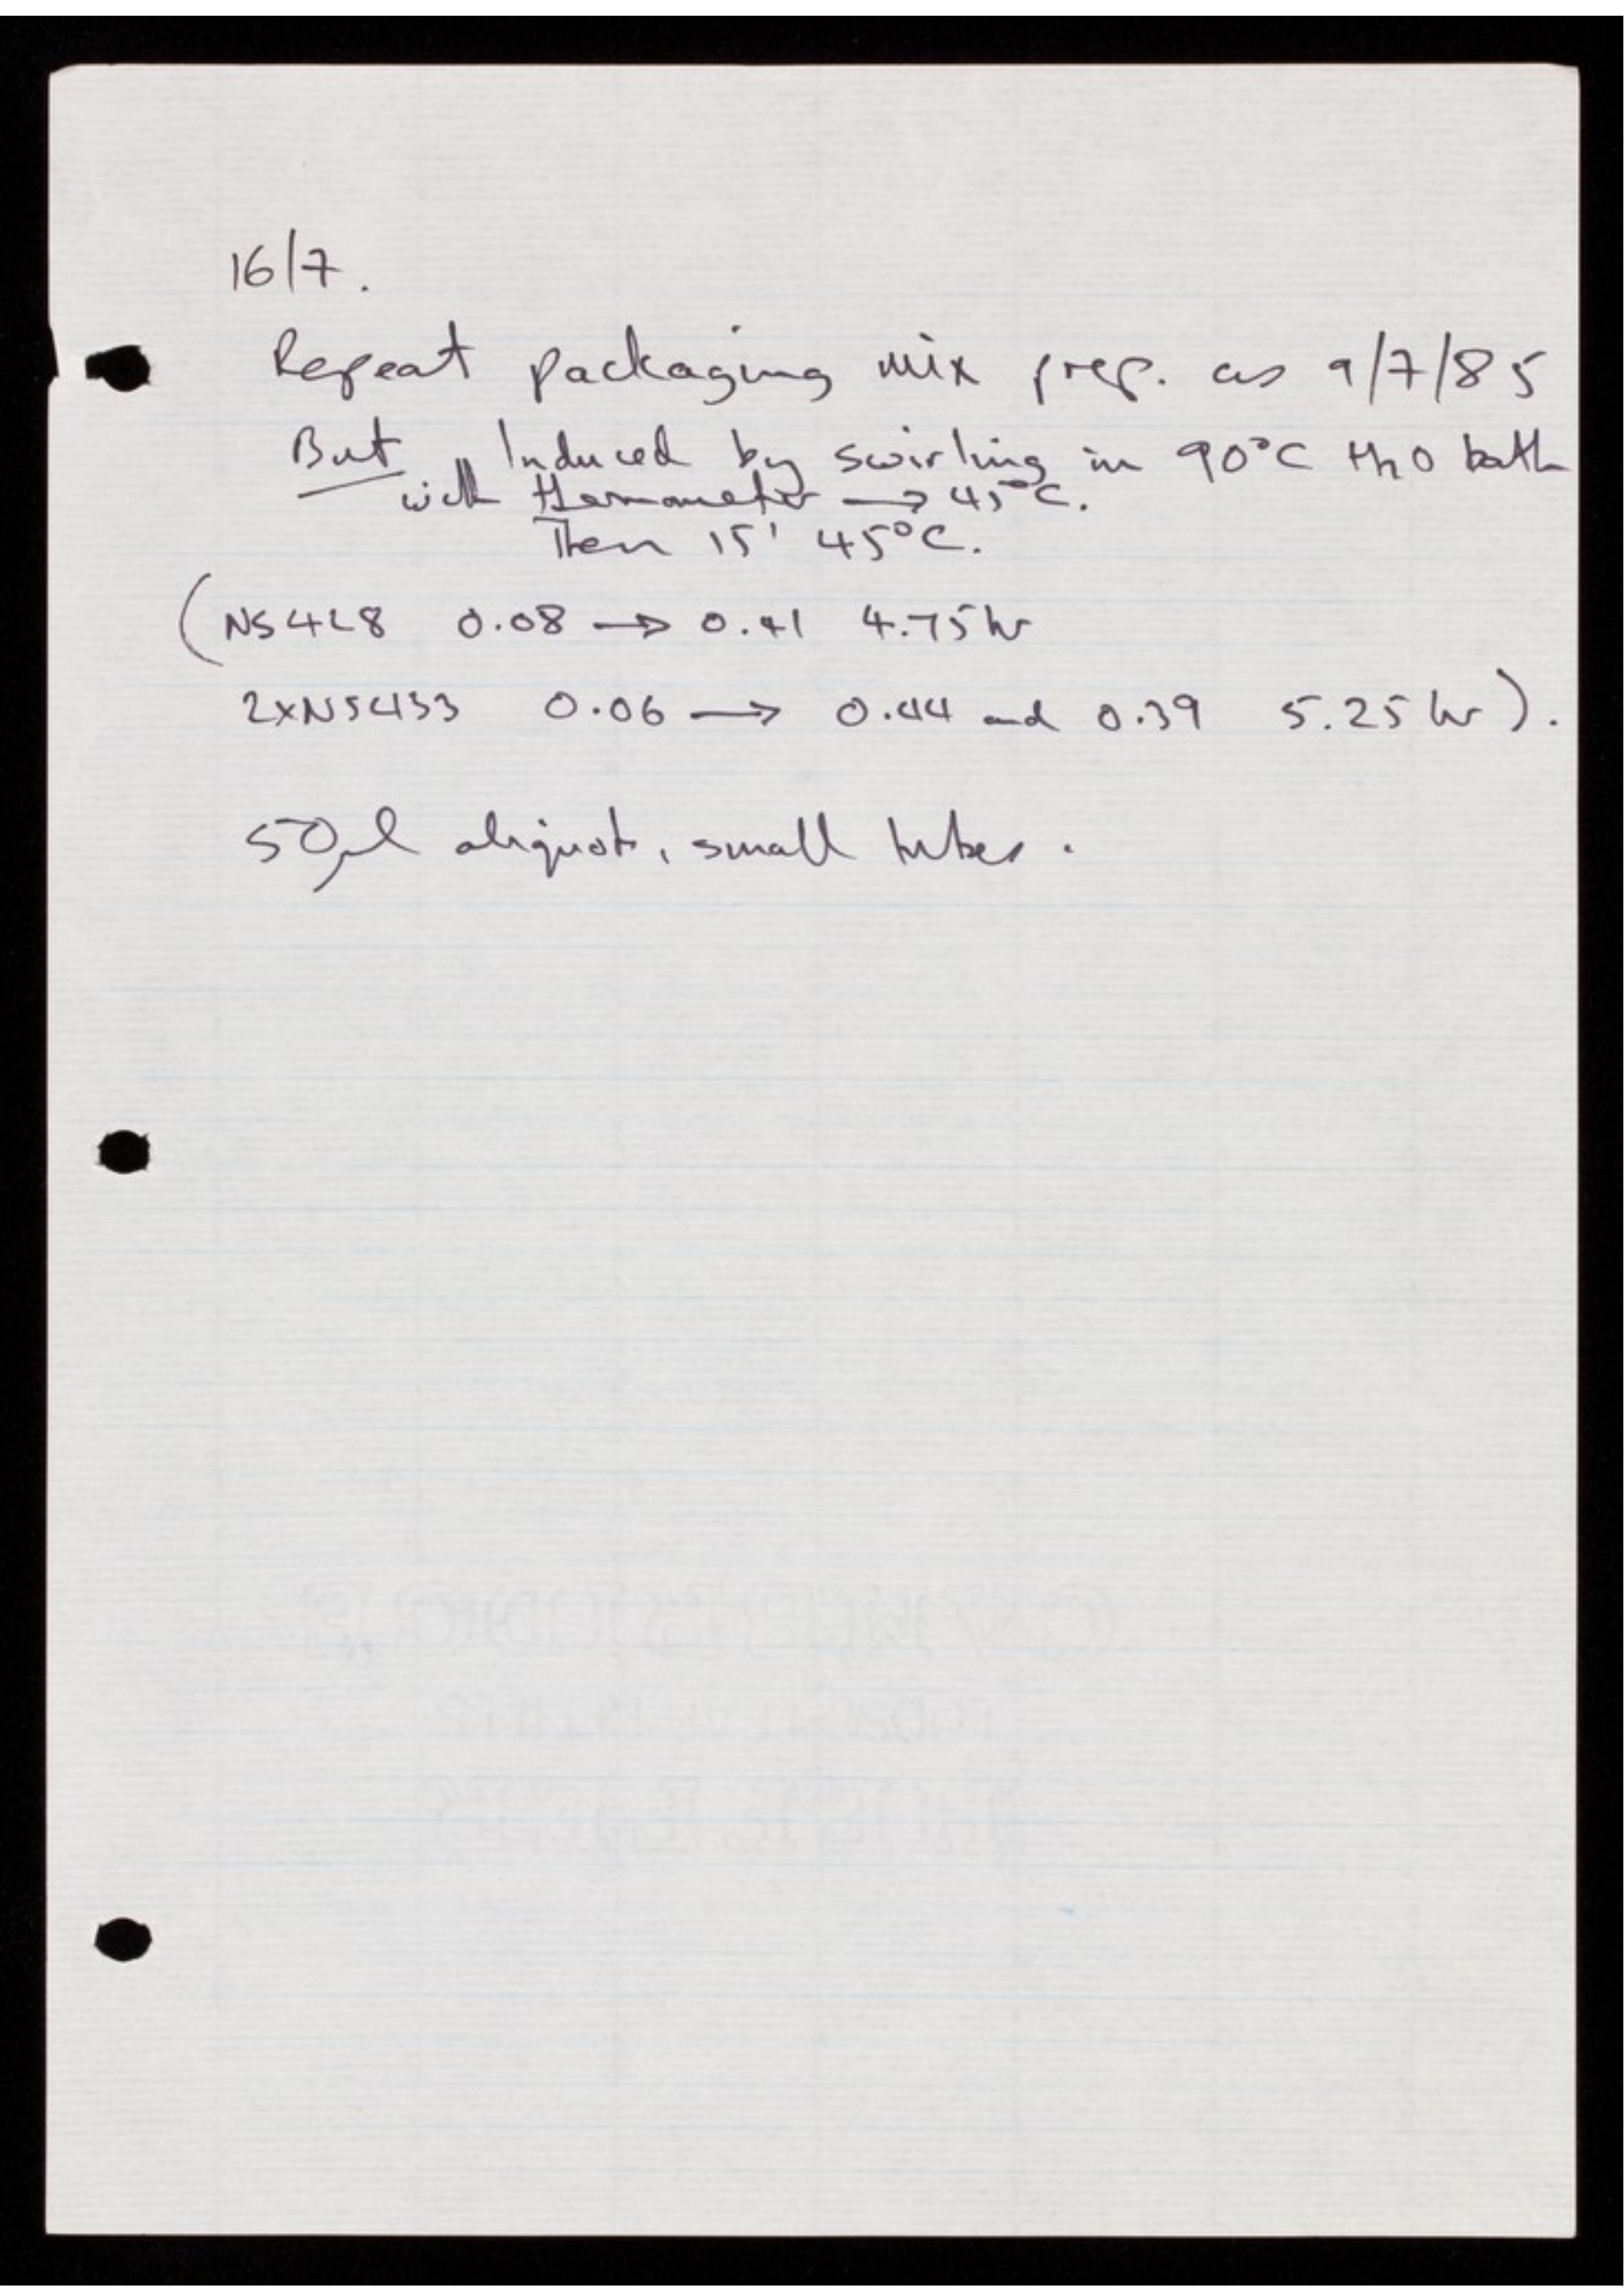 16/7.
Repeat packaging mix prep. as 9/7/85
But, Induced by swirling in 90°C H2O bath
with thermometer → 45°C.
Then 15' 45°C.
(NS428 0.08 → 0.41 4.75hr
2xNS433 0.06 → 0.44 and 0.39 5.25 hr).
50µl aliquots, small tubes.